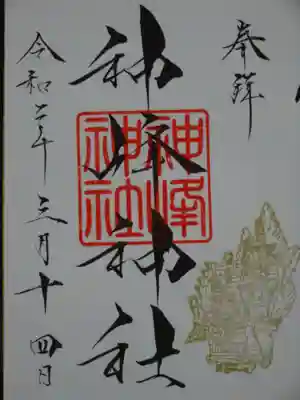 奉拝
神峰神社
神峰
神社
令和二年三月十四日